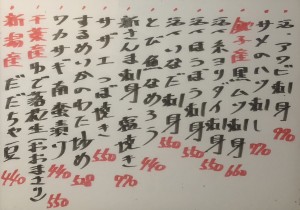 活〆アワビ刺身 990
サメのハツ刺し 770
金平産 黒ムツ刺身 660
活〆ヨリダイ刺身 550
活〆ほうぼう刺身 550
活〆いなだ刺身 550
とび魚なめろう 440
新さんま刺身、塩焼き 770
サザエつぼ焼き 550
するめいかのわた炒め 528
ワカサギ南蛮漬け 440
千葉産 ゆで落花生(おおまさり) 550
新潟産 だだちゃ豆 440